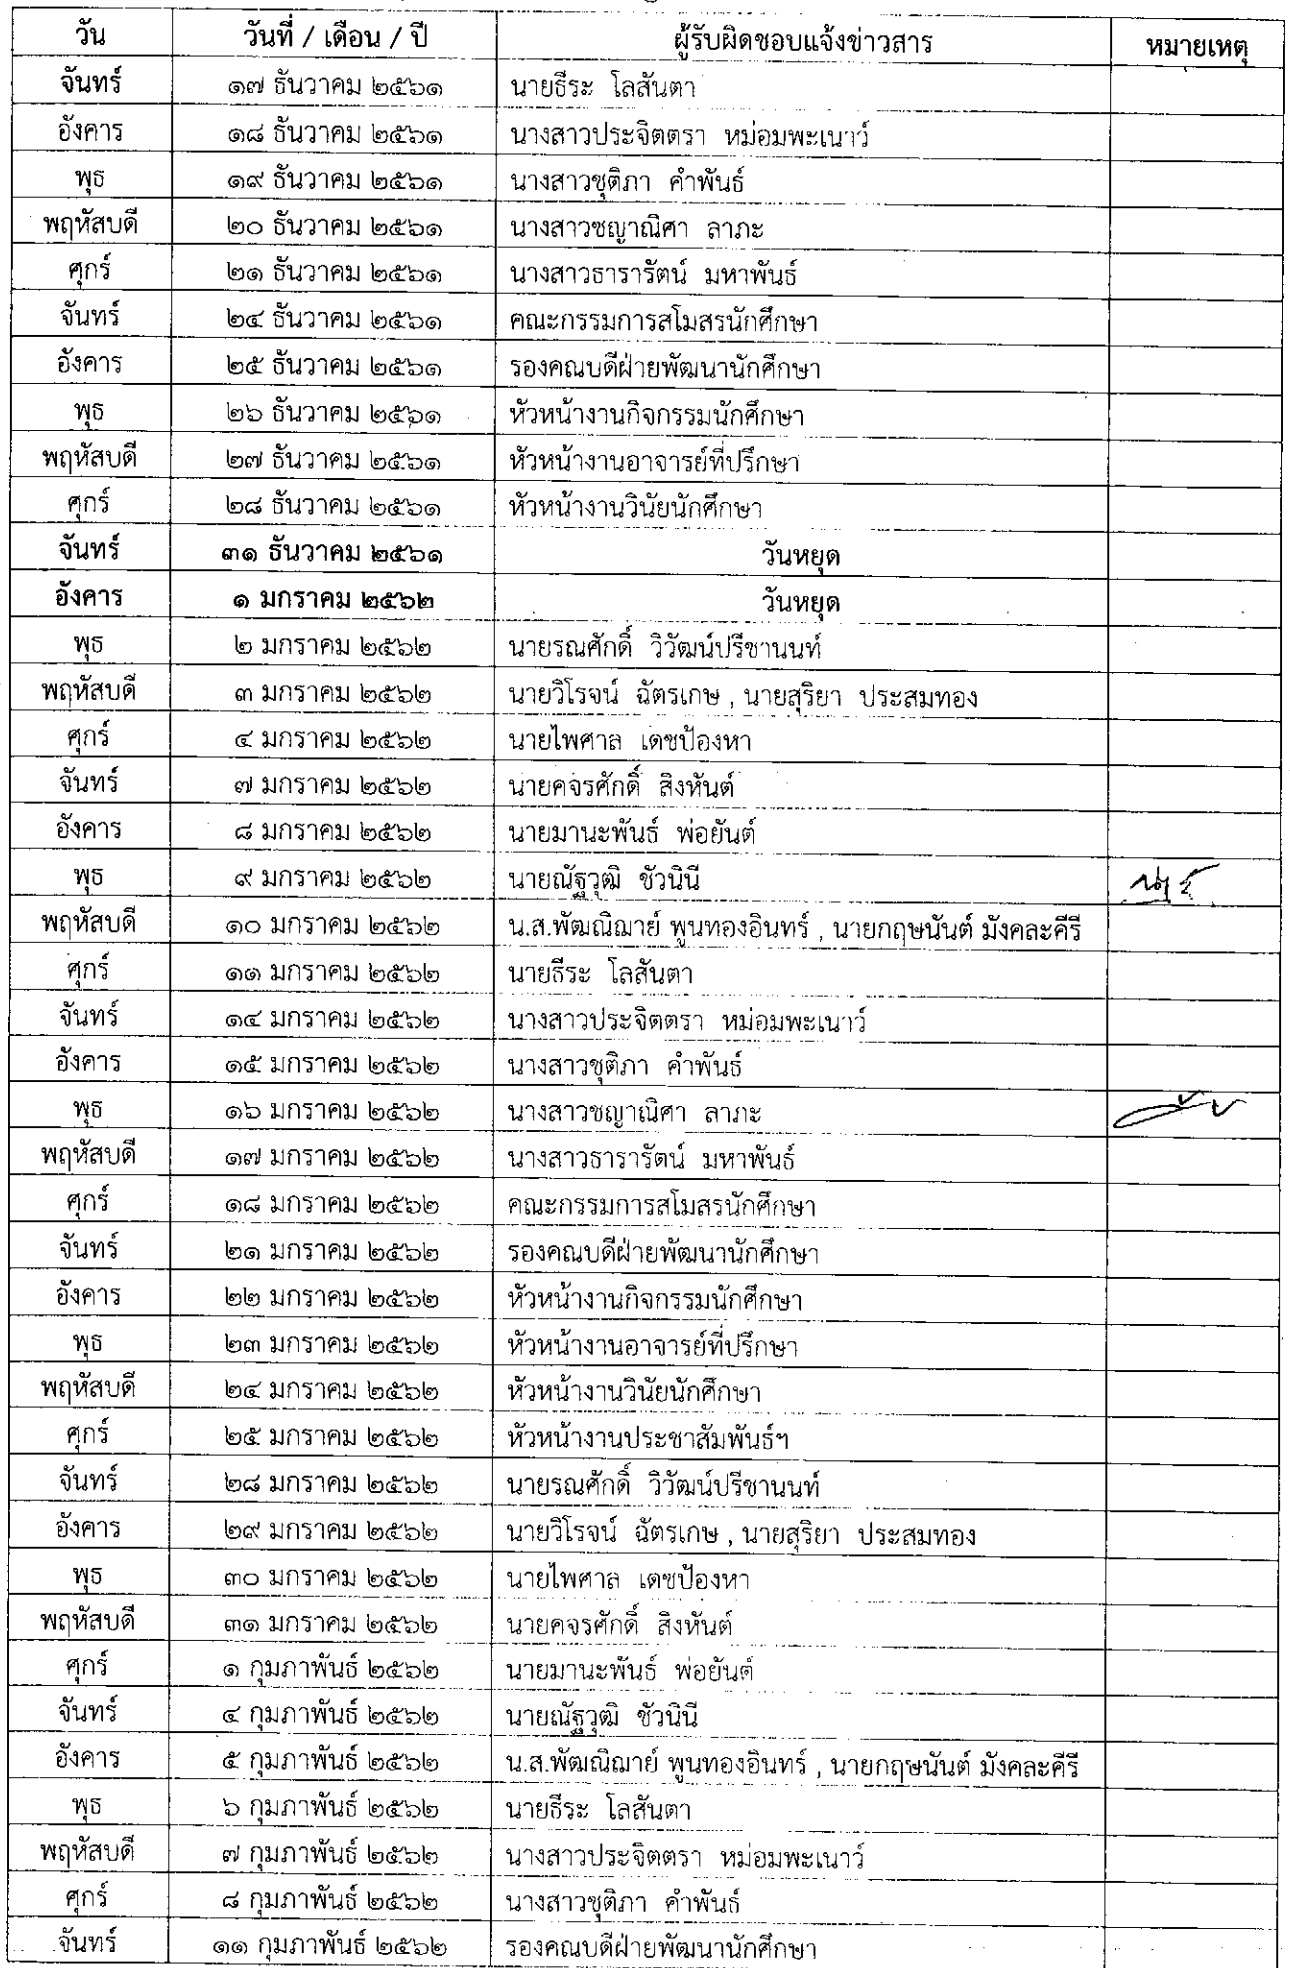 วัน วันที่ / เดือน / ปี ผู้รับผิดชอบแจ้งข่าวสาร หมายเหตุ
จันทร์ ๑๗ ธันวาคม ๒๕๖๑ นายธีระ โลสันตา
อังคาร ๑๘ ธันวาคม ๒๕๖๑ นางสาวประจิตตรา หม่อมพะเนาว์
พุธ ๑๙ ธันวาคม ๒๕๖๑ นางสาวชุติภา คำพันธ์
พฤหัสบดี ๒๐ ธันวาคม ๒๕๖๑ นางสาวชญาณิศา ลาภะ
ศุกร์ ๒๑ ธันวาคม ๒๕๖๑ นางสาวธารารัตน์ มหาพันธ์
จันทร์ ๒๔ ธันวาคม ๒๕๖๑ คณะกรรมการสโมสรนักศึกษา
อังคาร ๒๕ ธันวาคม ๒๕๖๑ รองคณบดีฝ่ายพัฒนานักศึกษา
พุธ ๒๖ ธันวาคม ๒๕๖๑ หัวหน้างานกิจกรรมนักศึกษา
พฤหัสบดี ๒๗ ธันวาคม ๒๕๖๑ หัวหน้างานอาจารย์ที่ปรึกษา
ศุกร์ ๒๘ ธันวาคม ๒๕๖๑ หัวหน้างานวินัยนักศึกษา
จันทร์ ๓๑ ธันวาคม ๒๕๖๑ วันหยุด
อังคาร ๑ มกราคม ๒๕๖๒ วันหยุด
พุธ ๒ มกราคม ๒๕๖๒ นายรณศักดิ์ วิวัฒน์ปรีชานนท์
พฤหัสบดี ๓ มกราคม ๒๕๖๒ นายวิโรจน์ ฉัตรเกษ , นายสุริยา ประสมทอง
ศุกร์ ๔ มกราคม ๒๕๖๒ นายไพศาล เดชป้องหา
จันทร์ ๗ มกราคม ๒๕๖๒ นายคจรศักดิ์ สิงหันต์
อังคาร ๘ มกราคม ๒๕๖๒ นายมานะพันธ์ พ่อยันต์
พุธ ๙ มกราคม ๒๕๖๒ นายณัฐวุฒิ ชัวนินี
พฤหัสบดี ๑๐ มกราคม ๒๕๖๒ น.ส.พัฒณิฌาย์ พูนทองอินทร์ , นายกฤษนันต์ มังคละคีรี
ศุกร์ ๑๑ มกราคม ๒๕๖๒ นายธีระ โลสันตา
จันทร์ ๑๔ มกราคม ๒๕๖๒ นางสาวประจิตตรา หม่อมพะเนาว์
อังคาร ๑๕ มกราคม ๒๕๖๒ นางสาวชุติภา คำพันธ์
พุธ ๑๖ มกราคม ๒๕๖๒ นางสาวชญาณิศา ลาภะ
พฤหัสบดี ๑๗ มกราคม ๒๕๖๒ นางสาวธารารัตน์ มหาพันธ์
ศุกร์ ๑๘ มกราคม ๒๕๖๒ คณะกรรมการสโมสรนักศึกษา
จันทร์ ๒๑ มกราคม ๒๕๖๒ รองคณบดีฝ่ายพัฒนานักศึกษา
อังคาร ๒๒ มกราคม ๒๕๖๒ หัวหน้างานกิจกรรมนักศึกษา
พุธ ๒๓ มกราคม ๒๕๖๒ หัวหน้างานอาจารย์ที่ปรึกษา
พฤหัสบดี ๒๔ มกราคม ๒๕๖๒ หัวหน้างานวินัยนักศึกษา
ศุกร์ ๒๕ มกราคม ๒๕๖๒ หัวหน้างานประชาสัมพันธ์ฯ
จันทร์ ๒๘ มกราคม ๒๕๖๒ นายรณศักดิ์ วิวัฒน์ปรีชานนท์
อังคาร ๒๙ มกราคม ๒๕๖๒ นายวิโรจน์ ฉัตรเกษ , นายสุริยา ประสมทอง
พุธ ๓๐ มกราคม ๒๕๖๒ นายไพศาล เดชป้องหา
พฤหัสบดี ๓๑ มกราคม ๒๕๖๒ นายคจรศักดิ์ สิงหันต์
ศุกร์ ๑ กุมภาพันธ์ ๒๕๖๒ นายมานะพันธ์ พ่อยันต์
จันทร์ ๔ กุมภาพันธ์ ๒๕๖๒ นายณัฐวุฒิ ชัวนินี
อังคาร ๕ กุมภาพันธ์ ๒๕๖๒ น.ส.พัฒณิฌาย์ พูนทองอินทร์ , นายกฤษนันต์ มังคละคีรี
พุธ ๖ กุมภาพันธ์ ๒๕๖๒ นายธีระ โลสันตา
พฤหัสบดี ๗ กุมภาพันธ์ ๒๕๖๒ นางสาวประจิตตรา หม่อมพะเนาว์
ศุกร์ ๘ กุมภาพันธ์ ๒๕๖๒ นางสาวชุติภา คำพันธ์
จันทร์ ๑๑ กุมภาพันธ์ ๒๕๖๒ รองคณบดีฝ่ายพัฒนานักศึกษา